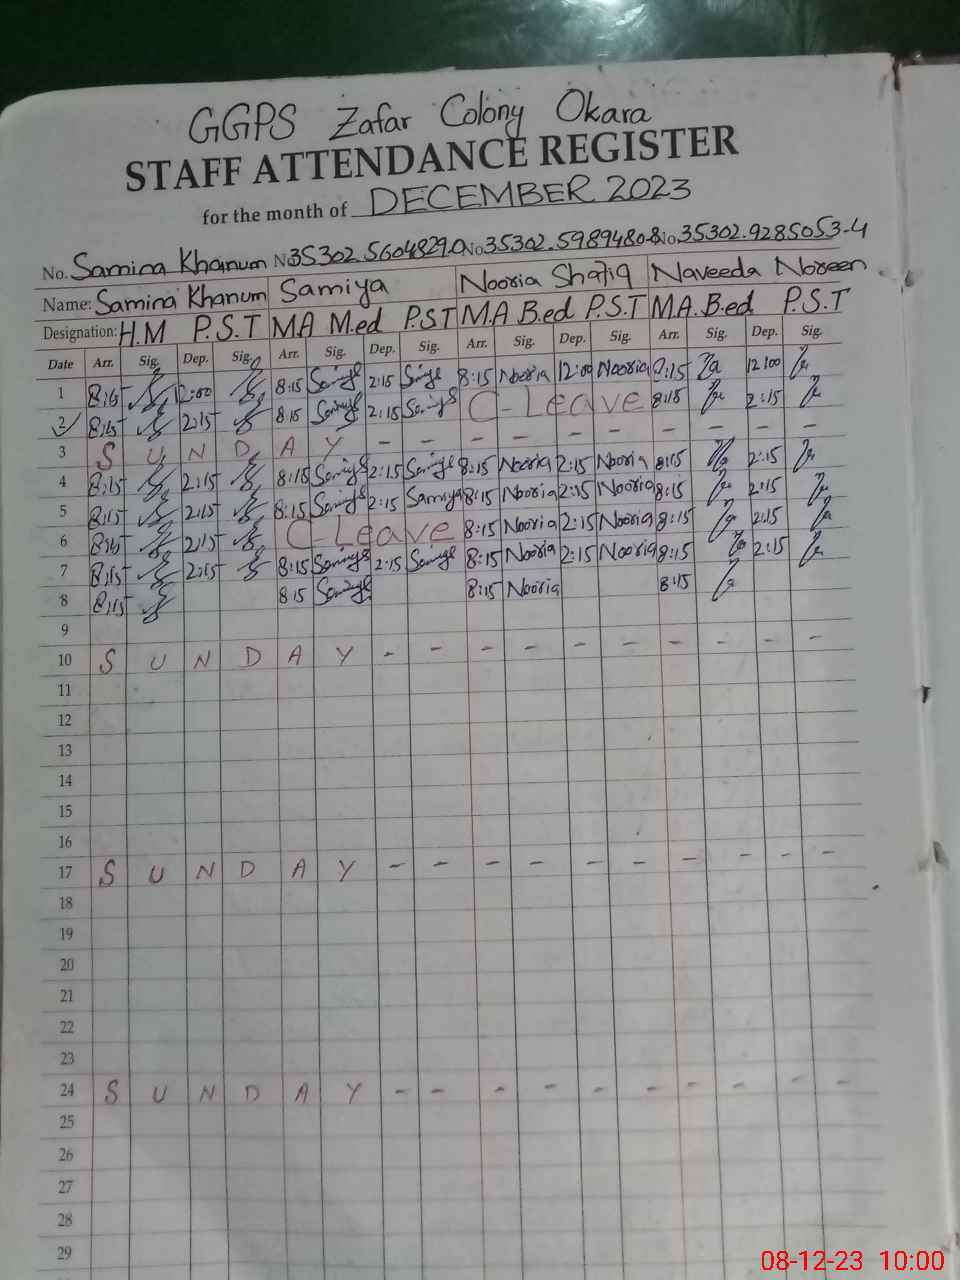 GGPS Zafar Colony Okara
STAFF ATTENDANCE REGISTER
for the month of DECEMBER 2023
No. Samina Khanum No 35302.5604829.0 No 35302.5989480-8 No. 35302.9285053-4
Name: Samina Khanum Samiya Nooria Shafiq Naveeda Noreen
Designation: H.M P.S.T MA M.ed P.S.T M.A B.ed P.S.T M.A. B.ed P.S.T
Date Arr. Sig. Dep. Sig. Arr. Sig. Dep. Sig. Arr. Sig. Dep. Sig. Arr. Sig. Dep. Sig.
1 8:15 12:00 8:15 2:15 8:15 Nooria 12:00 Nooria 8:15 12:00
2 8:15 2:15 8:15 2:15 C-Leave 8:15 2:15
3 S U N D A Y - - - - - - - - - -
4 8:15 2:15 8:15 2:15 8:15 Nooria 2:15 Nooria 8:15 2:15
5 8:15 2:15 8:15 2:15 Samiya 8:15 Nooria 2:15 Nooria 8:15 2:15
6 8:15 2:15 C-Leave 8:15 Nooria 2:15 Nooria 8:15 2:15
7 8:15 2:15 8:15 2:15 8:15 Nooria 2:15 Nooria 8:15 2:15
8 8:15 8:15 8:15 Nooria 8:15
9
10 S U N D A Y - - - - - - - - - -
11
12
13
14
15
16
17 S U N D A Y - - - - - - - - - -
18
19
20
21
22
23
24 S U N D A Y - - - - - - - - - -
25
26
27
28
29
08-12-23 10:00